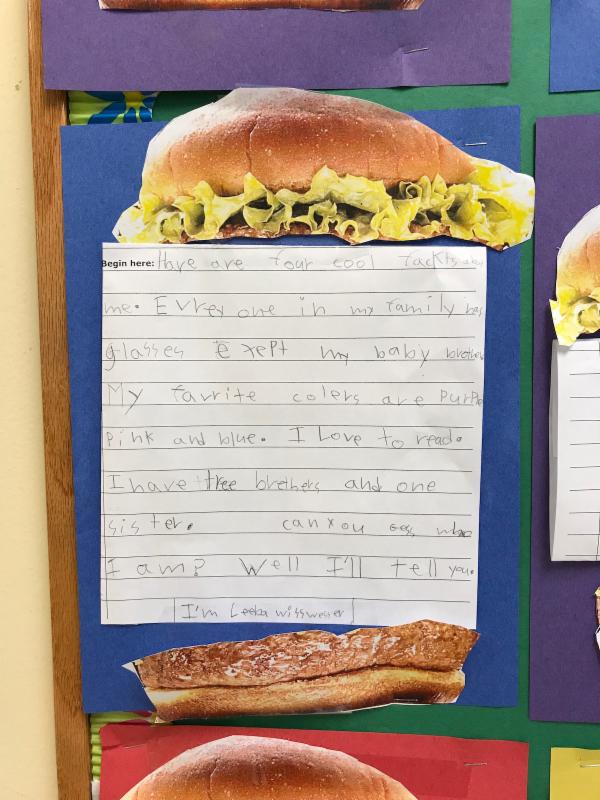 Begin here: Hare are four cool fackts abo
me. Evrey one in my family has
glasses exept my baby brother
My favrite colers are purple
Pink and blue. I Love to read.
I have three brethers and one
sister. can you gess who
I am? Well I'll tell you.
I'm Leeba